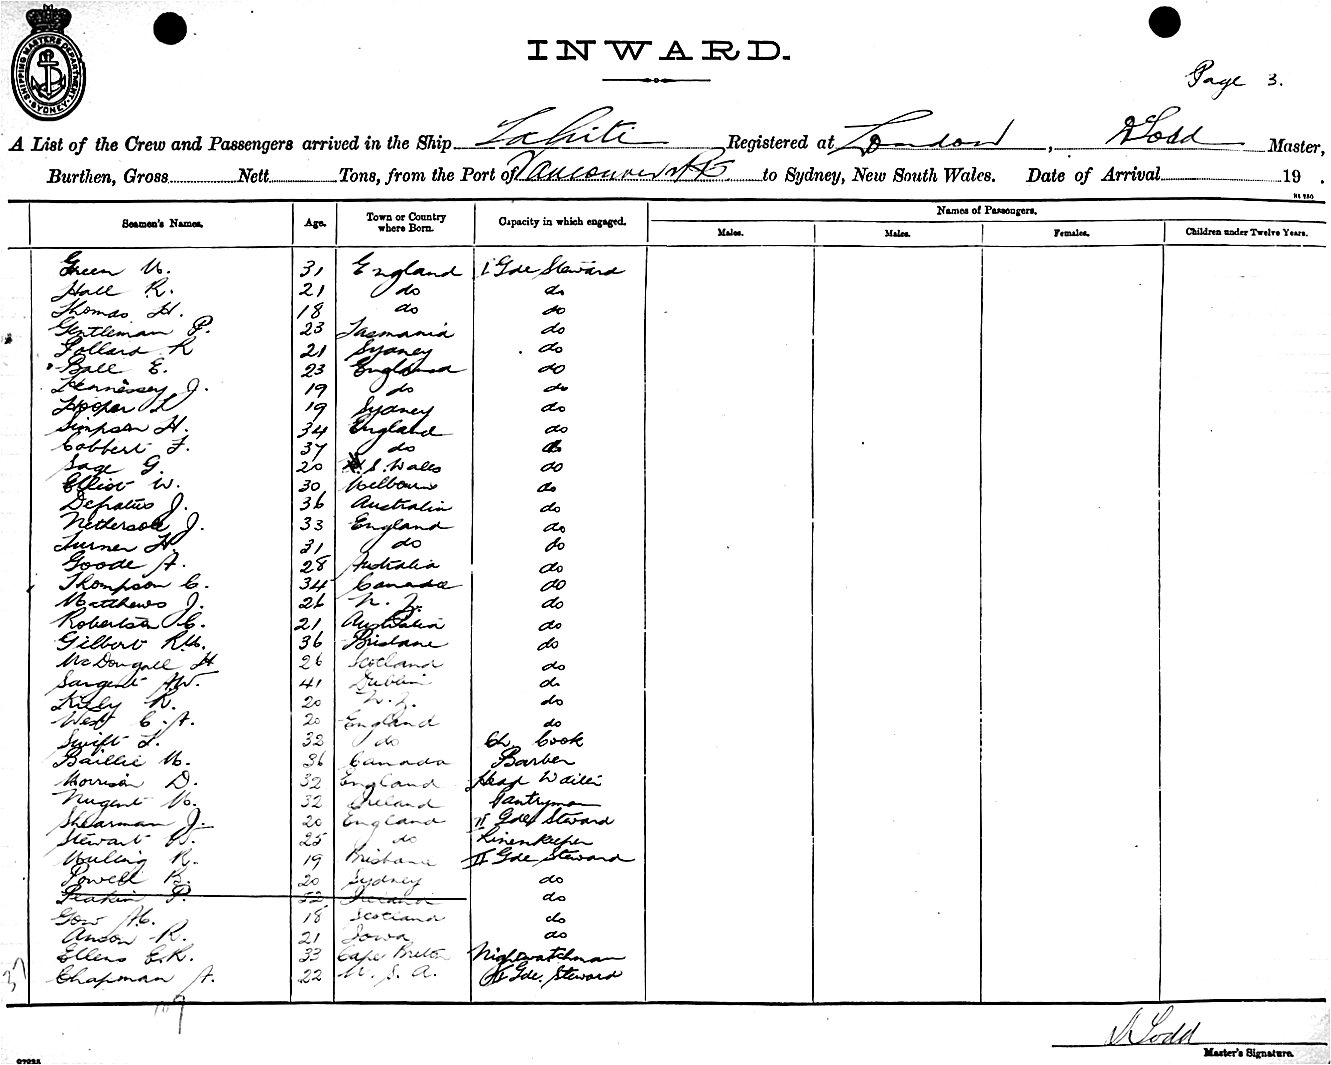 SHIPPING MASTERS DEPARTMENT SYDNEY
INWARD.
Page 3.
A List of the Crew and Passengers arrived in the Ship Tahiti Registered at London, Todd Master,
Burthen, Gross Nett Tons, from the Port of Vancouver to Sydney, New South Wales. Date of Arrival 19 .
Seamen's Names. Age. Town or Country where Born. Capacity in which engaged. Names of Passengers.
Males. Males. Females. Children under Twelve Years.
Green 31 England 1 Gde Steward
Hall R. 21 do do
Thomas H. 18 do do
Gentleman P. 23 Tasmania do
Pollard R 21 Sydney do
Ball E. 23 England do
Hennessey J. 19 do do
Hooper L 19 Sydney do
Simpson H. 34 England do
Cobbert F. 37 do do
Sage G. 20 N. S. Wales do
Elliot W. 30 Melbourne do
J. 36 Australia do
Nethersole J. 33 England do
Turner H. 31 do do
Goode A. 28 Australia do
Thompson C. 34 Canada do
Matthews J. 26 N. Z. do
Robertson C. 21 Australia do
Gilbert R.M. 36 Brisbane do
McDougall H 26 Scotland do
Sargent A.W. 41 Dublin do
R. 20 N. Z. do
West C. A. 20 England do
Swift L. 32 do Ch Cook
Baillie M. 36 Canada Barber
Morrison D. 32 England Head Waiter
Nugent M. 32 Ireland Pantryman
Shearman J. 20 England II Gde Steward
Stewart W. 25 do Linenkeeper
R. 19 Brisbane II Gde Steward
Powell 20 Sydney do
Peakin P. 52 Ireland do
Gow 18 Scotland do
Anson R. 21 Iowa do
Ellens E.R. 33 Cape Breton Nightwatchman
Chapman A. 22 U. S. A. II Gde. Steward
37
109
Todd
Master's Signature.